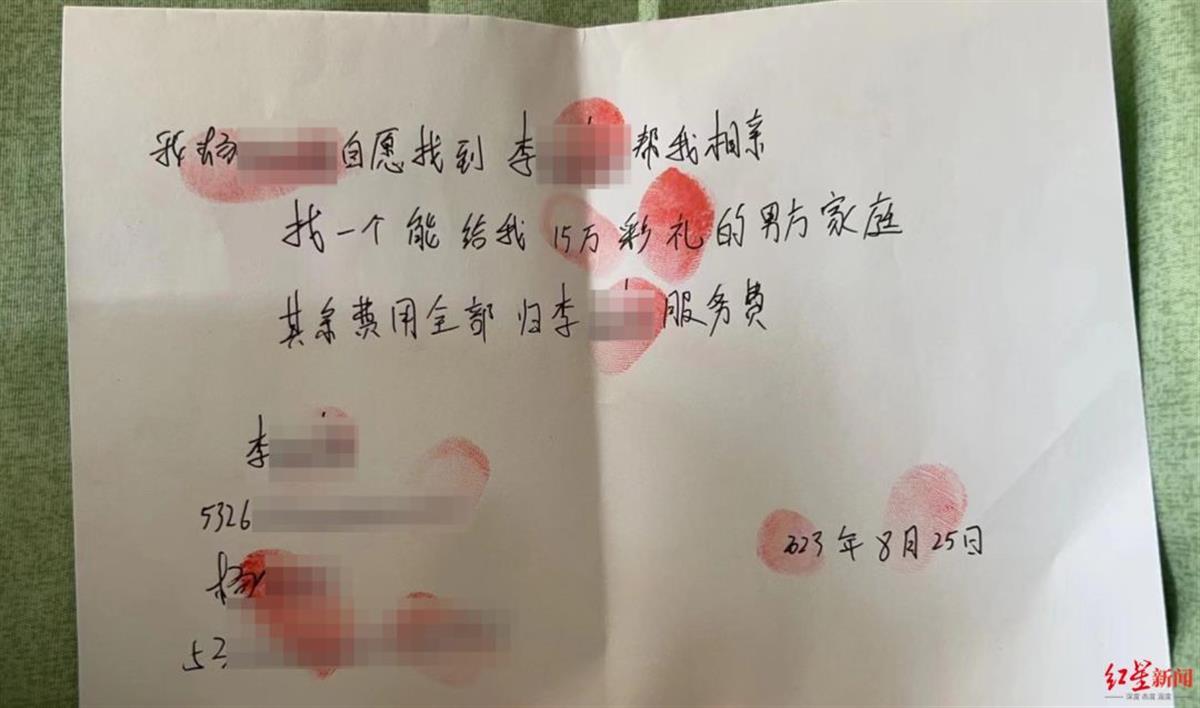 我杨 自愿找到 李 帮我相亲
找一个能给我15万彩礼的男方家庭
其余费用全部归李 服务费
李
5326
杨
2023年8月25日
52
红星新闻
深度 态度 温度